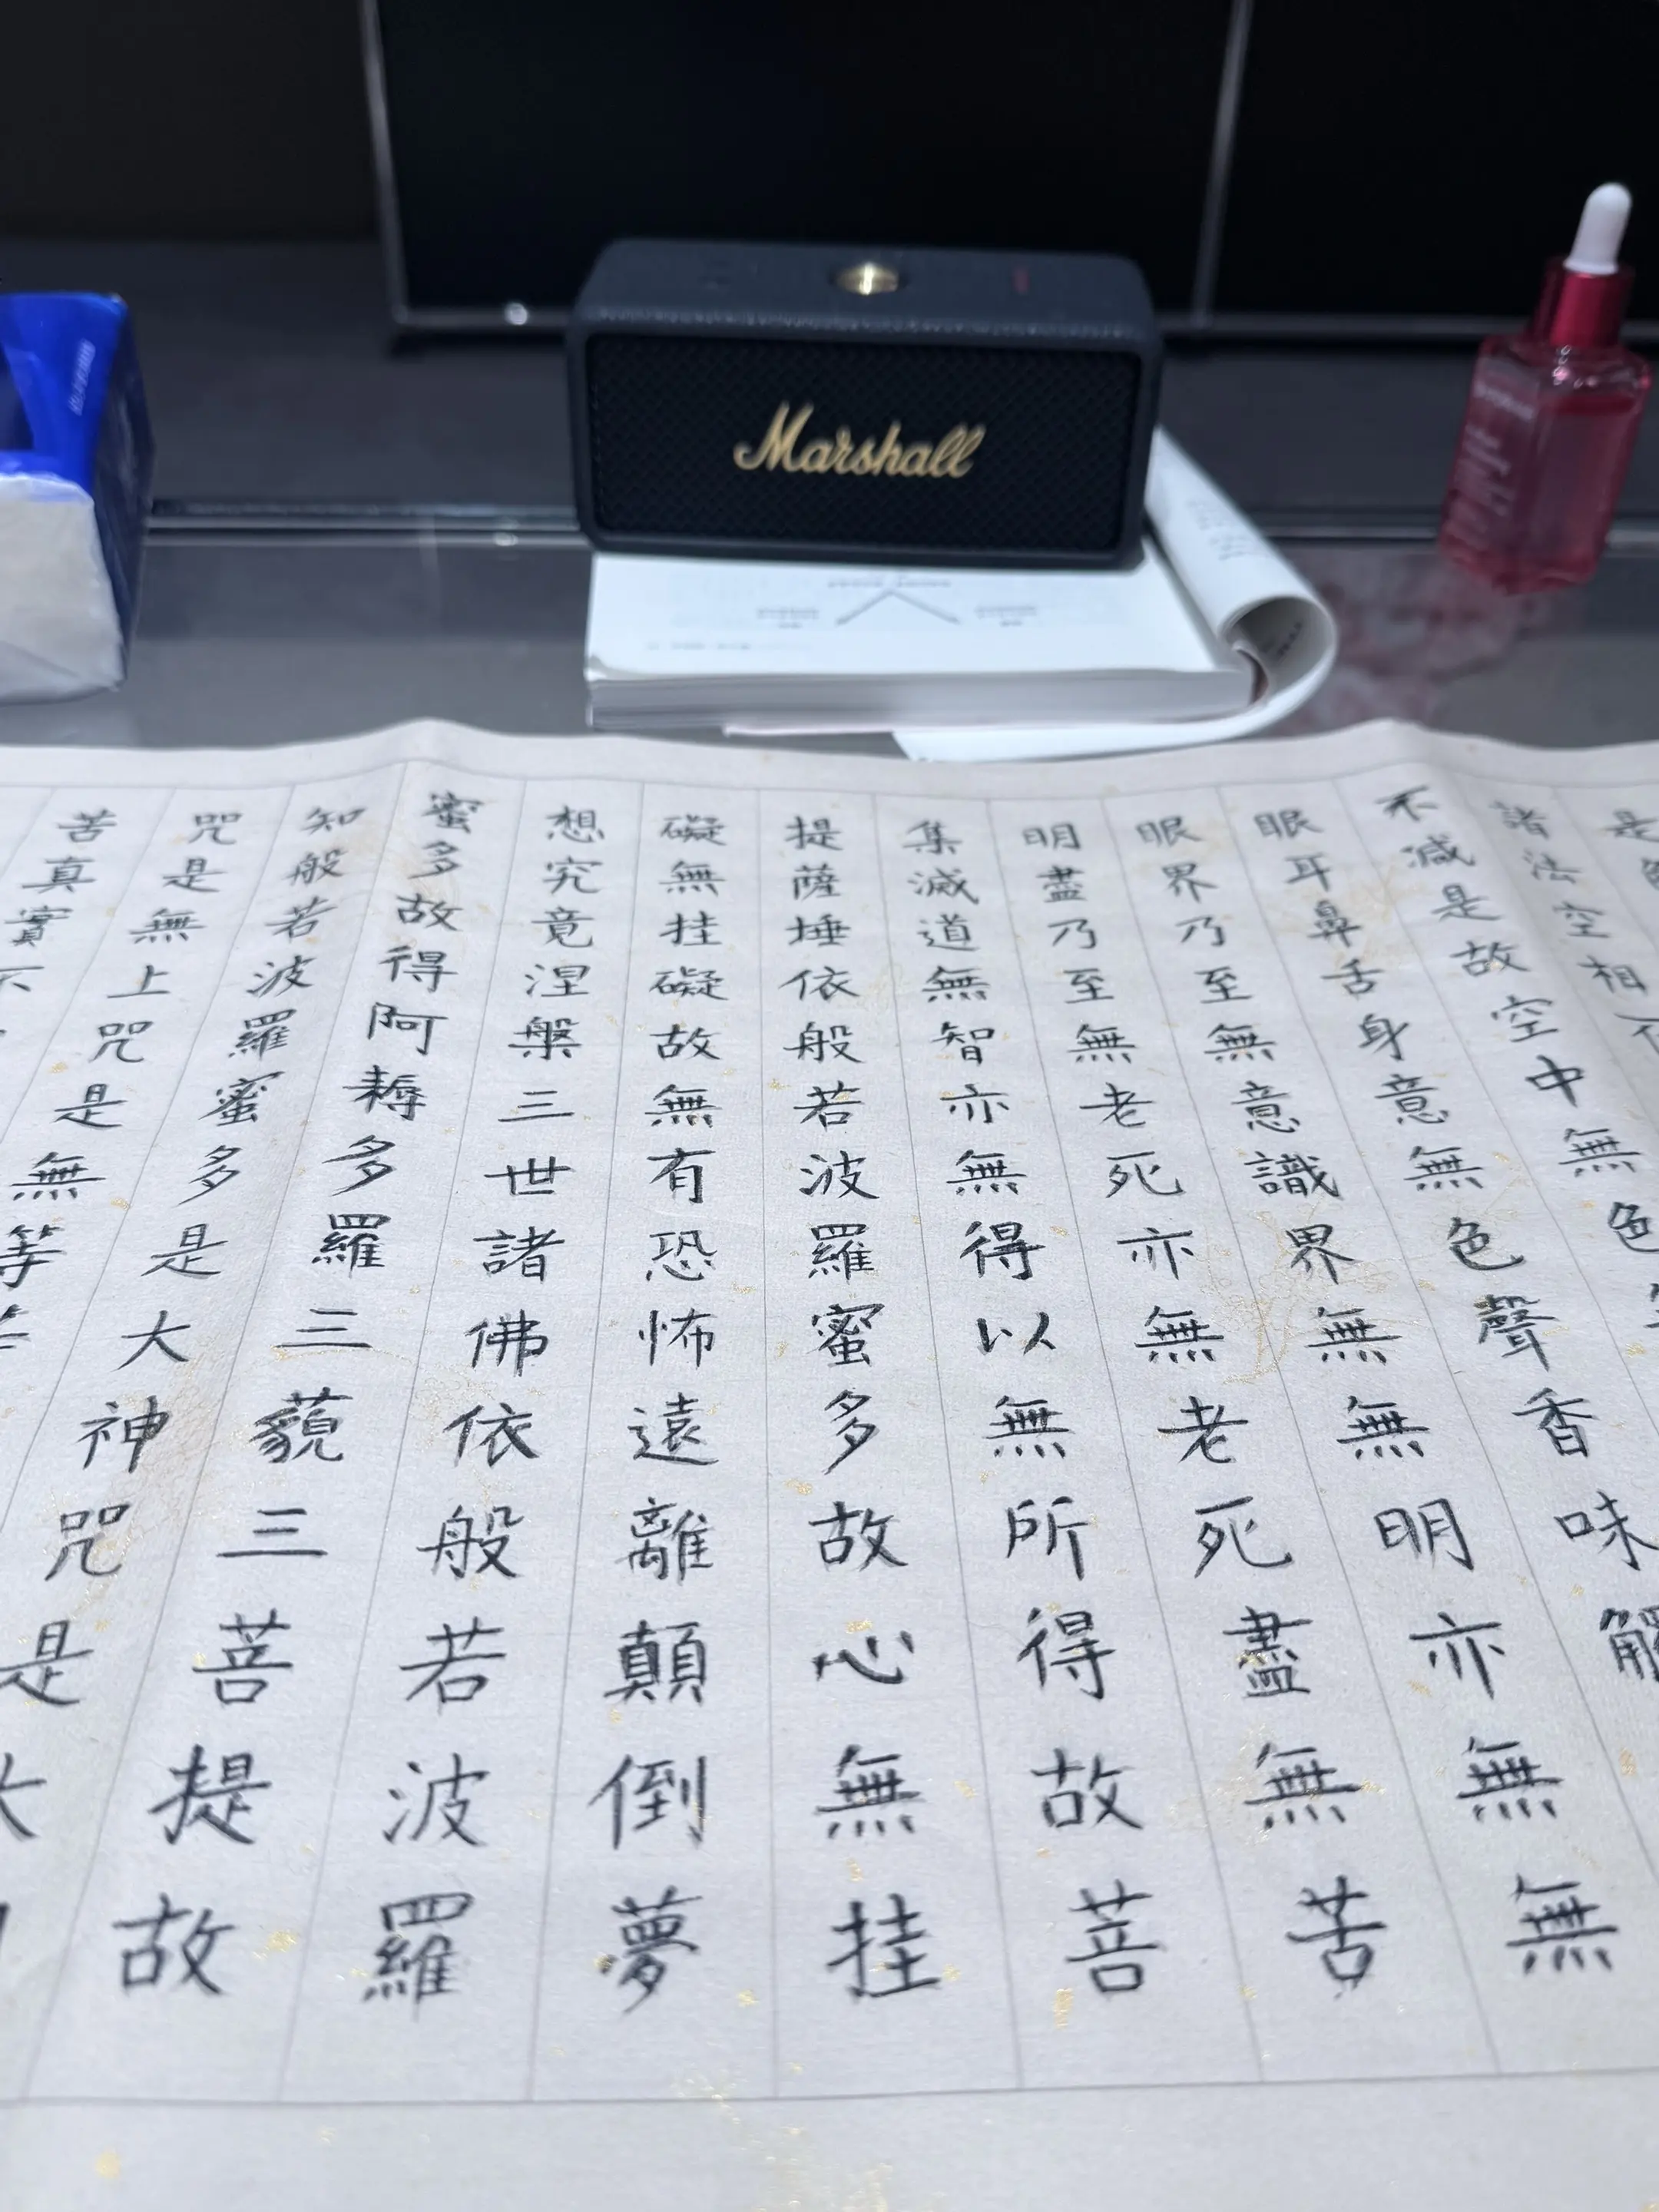 是
諸法空相不
不減是故空中無色
眼耳鼻舌身意無色聲香味觸
眼界乃至無意識界無無明亦無無
明盡乃至無老死亦無老死盡無苦
集滅道無智亦無得以無所得故菩
提薩埵依般若波羅蜜多故心無挂
礙無挂礙故無有恐怖遠離顛倒夢
想究竟涅槃三世諸佛依般若波羅
蜜多故得阿耨多羅三藐三菩提故
知般若波羅蜜多是大神咒是大
咒是無上咒是無等等
苦真實不
Marshall